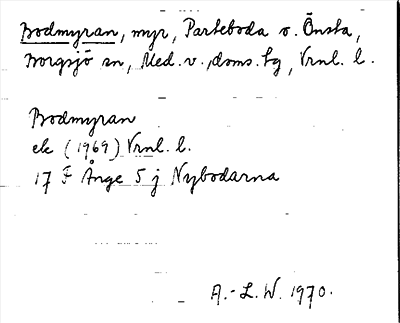 Bodmyran, myr, Parteboda o. Önsta,
Borgsjö sn, Med. v. doms. tg, Vrnl. l.
Bodmyran
ek (1969) Vrnl. l.
17 F Ånge 5 j Nybodarna
A.-L.W. 1970.